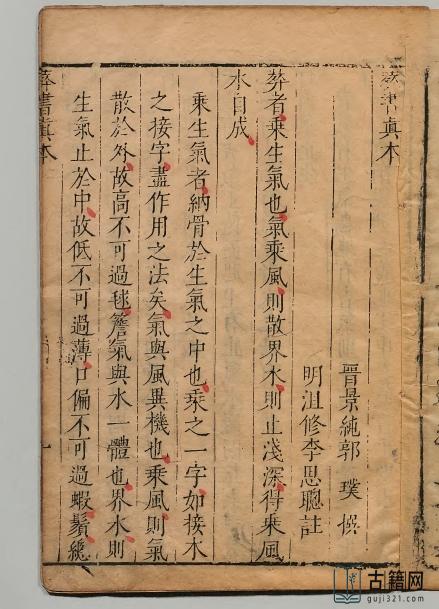 葬書眞本
晉景純郭 璞 撰
明沮修李思聰註
葬者乘生氣也氣乘風則散界水則止淺深得乘風
水自成
乘生氣者納骨於生氣之中也乘之一字如接木
之接字盡作用之法矣氣與風異機也乘風則氣
散於外故高不可過毬簷氣與水一體也界水則
生氣止於中故低不可過薄口偏不可過蝦鬚總
葬書眞本
一
古籍网
guji321.com